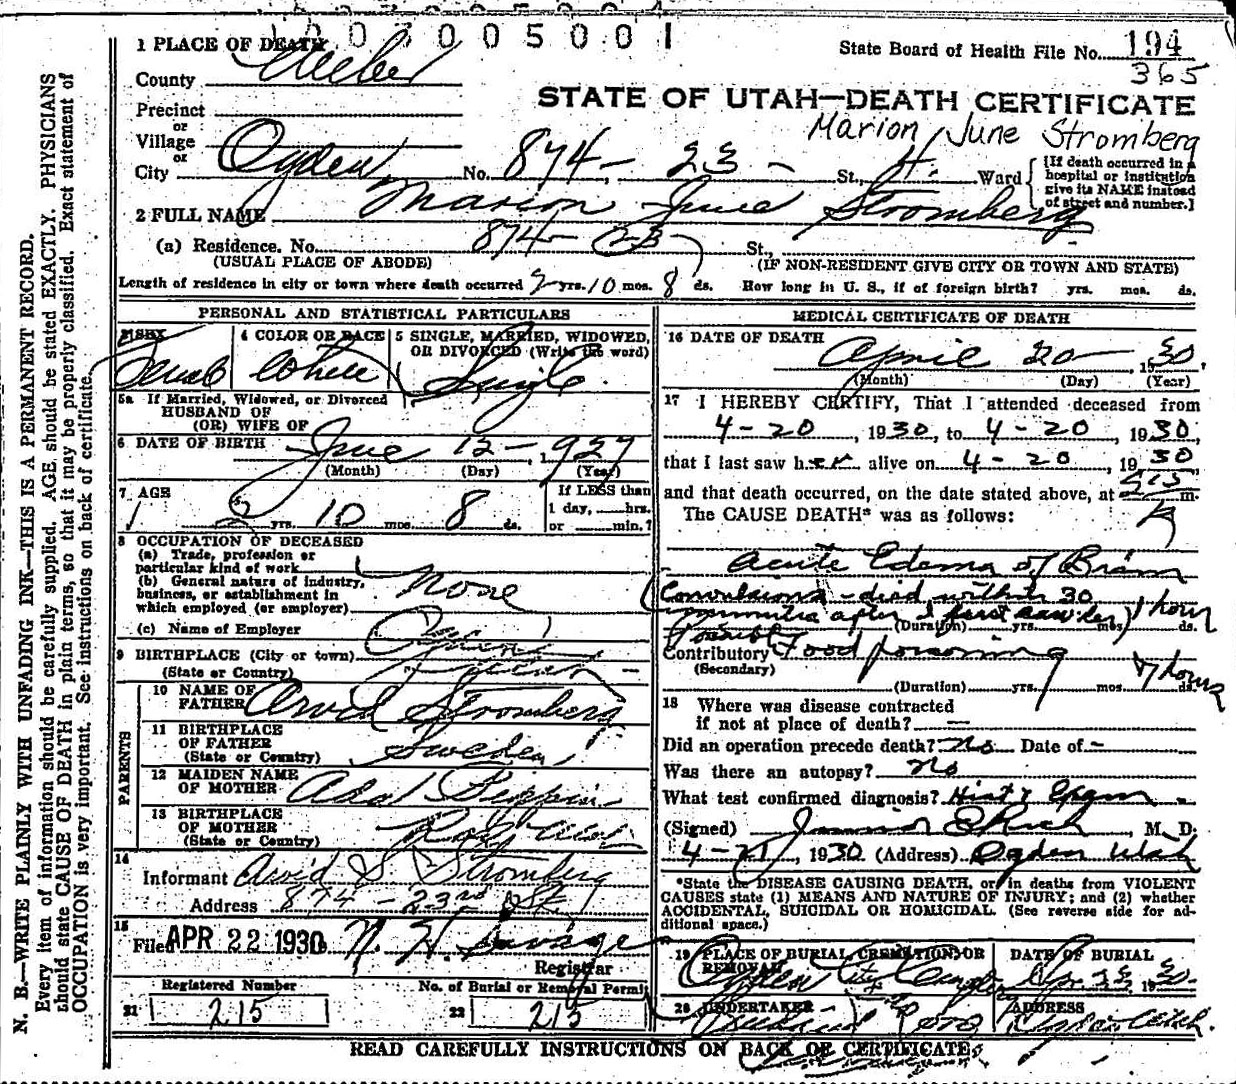 1003005001
1 PLACE OF DEATH
State Board of Health File No. 194
365
County Weber
STATE OF UTAH—DEATH CERTIFICATE
Precinct
or
Village
Marion June Stromberg
or
City Ogden No. 874 - 23 - St., Ward
[If death occurred in a hospital or institution give its NAME instead of street and number.]
2 FULL NAME Marion June Stromberg
(a) Residence. No. 874 - 23 St.,
(USUAL PLACE OF ABODE) (IF NON-RESIDENT GIVE CITY OR TOWN AND STATE)
Length of residence in city or town where death occurred 2 yrs. 10 mos. 8 ds. How long in U. S., if of foreign birth? yrs. mos. ds.
PERSONAL AND STATISTICAL PARTICULARS
3 SEX Female
4 COLOR OR RACE White
5 SINGLE, MARRIED, WIDOWED, OR DIVORCED (Write the word) Single
5a If Married, Widowed, or Divorced
HUSBAND OF
(OR) WIFE OF
6 DATE OF BIRTH June 12 - 1927
(Month) (Day) (Year)
7 AGE 2 yrs. 10 mos. 8 ds.
If LESS than
1 day, hrs.
or min.?
8 OCCUPATION OF DECEASED
(a) Trade, profession or
particular kind of work
(b) General nature of industry,
business, or establishment in
which employed (or employer) None
(c) Name of Employer
9 BIRTHPLACE (City or town) Ogden
(State or Country) Utah
PARENTS
10 NAME OF FATHER Arvid Stromberg
11 BIRTHPLACE OF FATHER (State or Country) Sweden
12 MAIDEN NAME OF MOTHER Ada
13 BIRTHPLACE OF MOTHER (State or Country) Roy Utah
14
Informant Arvid S Stromberg
Address 874 - 23rd St.
15 Filed APR 22 1930 N. H. Savage
Registrar
Registered Number No. of Burial or Removal Permit
21 215 22 215
MEDICAL CERTIFICATE OF DEATH
16 DATE OF DEATH April 20 , 1930.
(Month) (Day) (Year)
17 I HEREBY CERTIFY, That I attended deceased from
4-20 , 1930, to 4-20 1930,
that I last saw her alive on 4-20 , 1930
and that death occurred, on the date stated above, at 915 m.
The CAUSE DEATH* was as follows:
Acute Edema of Brain
(Convulsions - died within 30
minutes after I first saw her) 1 hour
(Duration) yrs. mos. ds.
Possibly
Contributory Food poisoning
(Secondary)
7 hours
(Duration) yrs. mos. ds.
18 Where was disease contracted
if not at place of death? —
Did an operation precede death? No Date of -
Was there an autopsy? no
What test confirmed diagnosis? Hist &
(Signed) Rich , M. D.
4-21 , 1930 (Address) Ogden Utah
*State the DISEASE CAUSING DEATH, or in deaths from VIOLENT
CAUSES state (1) MEANS AND NATURE OF INJURY; and (2) whether
ACCIDENTAL, SUICIDAL OR HOMICIDAL. (See reverse side for ad-
ditional space.)
19 PLACE OF BURIAL, CREMATION, OR REMOVAL Ogden City
DATE OF BURIAL Apr. 22 1930
20 UNDERTAKER
ADDRESS Ogden Utah.
READ CAREFULLY INSTRUCTIONS ON BACK OF CERTIFICATE.
N. B.—WRITE PLAINLY WITH UNFADING INK—THIS IS A PERMANENT RECORD.
Every item of information should be carefully supplied. AGE should be stated EXACTLY. PHYSICIANS
should state CAUSE OF DEATH in plain terms, so that it may be properly classified. Exact statement of
OCCUPATION is very important. See instructions on back of certificate.